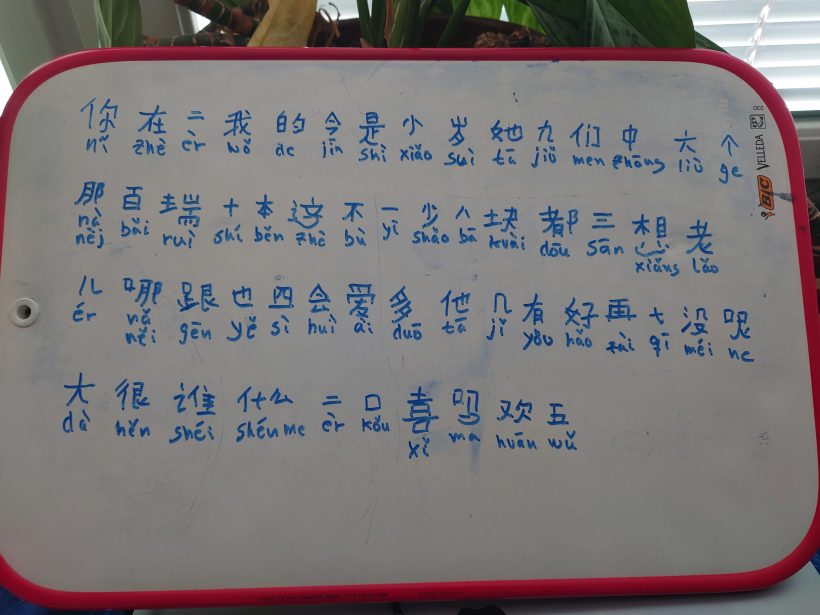 你 在 二 我 的 今 是 小 岁 她 九 们 中 六 个
nǐ zhè èr wǒ de jīn shì xiǎo suì tā jiǔ men zhōng liù ge
那 百 瑞 十 本 这 不 一 少 八 块 都 三 想 老
nà bǎi ruì shí běn zhè bù yī shǎo bā kuài dōu sān xiǎng lǎo
nèj
儿 哪 跟 也 四 会 爱 多 他 几 有 好 再 七 没 呢
ér nǎ gēn yě sì huì ài duō tā jǐ yǒu hǎo zài qī méi ne
něi
大 很 谁 什么 二 口 喜 吗 欢 五
dà hěn shéi shénme èr kǒu xǐ ma huān wǔ
BIC VELLEDA